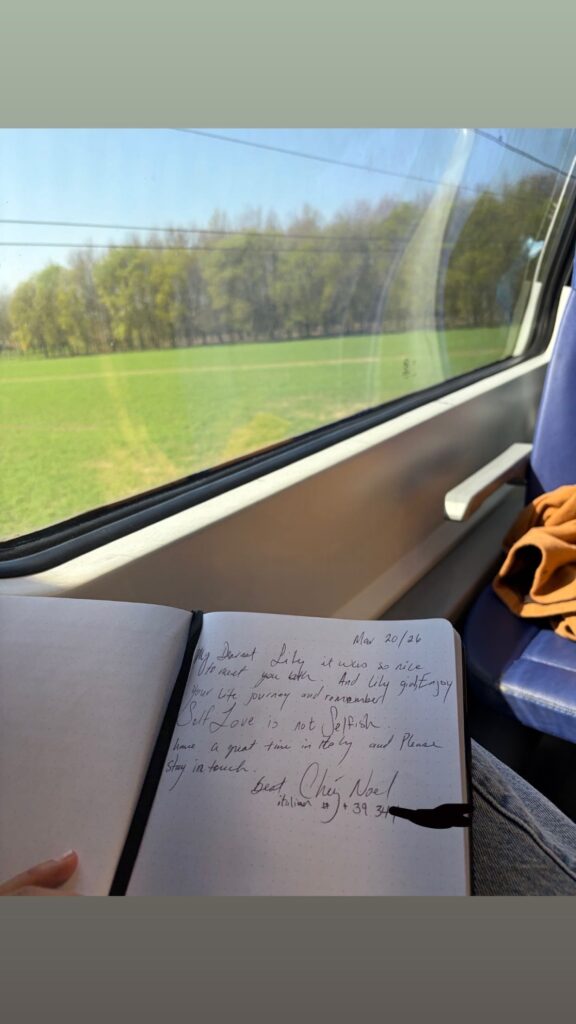 Mar 20/26
My Dearest Lily it was so nice
to meet you both. And Lily girl, Enjoy
your life journey and remember
Self Love is not Selfish.
have a great time in Italy and Please
stay in touch.
best Noel
italian # +39 34